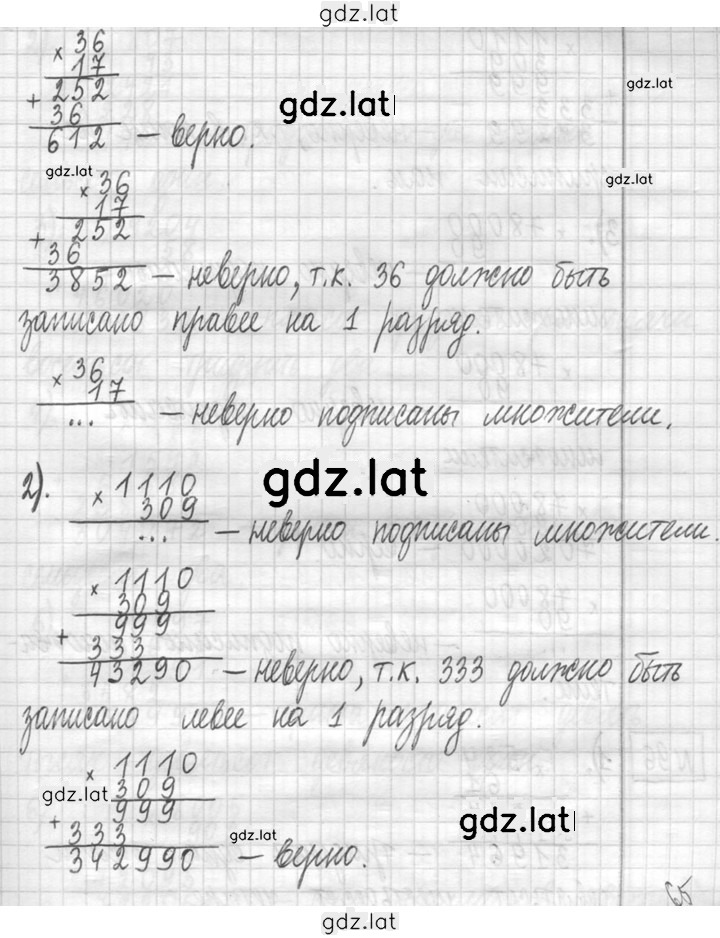 gdz.lat
× 36
17
gdz.lat
+ 252
gdz.lat
36
612 – верно.
gdz.lat
gdz.lat
× 36
17
+ 252
36
3852 – неверно, т.к. 36 должно быть
записано правее на 1 разряд.
× 36
17
... – неверно подписаны множители.
gdz.lat
2). × 1110
309
... – неверно подписаны множители.
× 1110
309
999
+ 333
43290 – неверно, т.к. 333 должно быть
записано левее на 1 разряд.
× 1110
gdz.lat 309
999
gdz.lat
+ 333
gdz.lat
342990 – верно.
65
gdz.lat